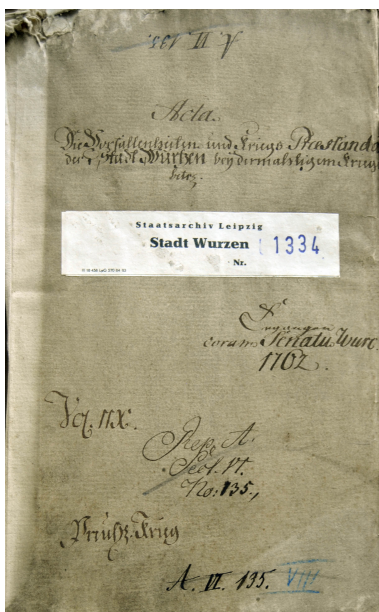 A. VI. 135.
Acta
Die Vorfallenheiten und Kriegs Praestanda
der Stadt Wurzen bey dermahligem Krieg
betr.
Staatsarchiv Leipzig
Stadt Wurzen
Nr.
1334
Ergangen
coram Senatu Wurc.
1762.
Rep. A.
Sect. VI.
No: 135.,
Krieg
A. VI. 135. VIII